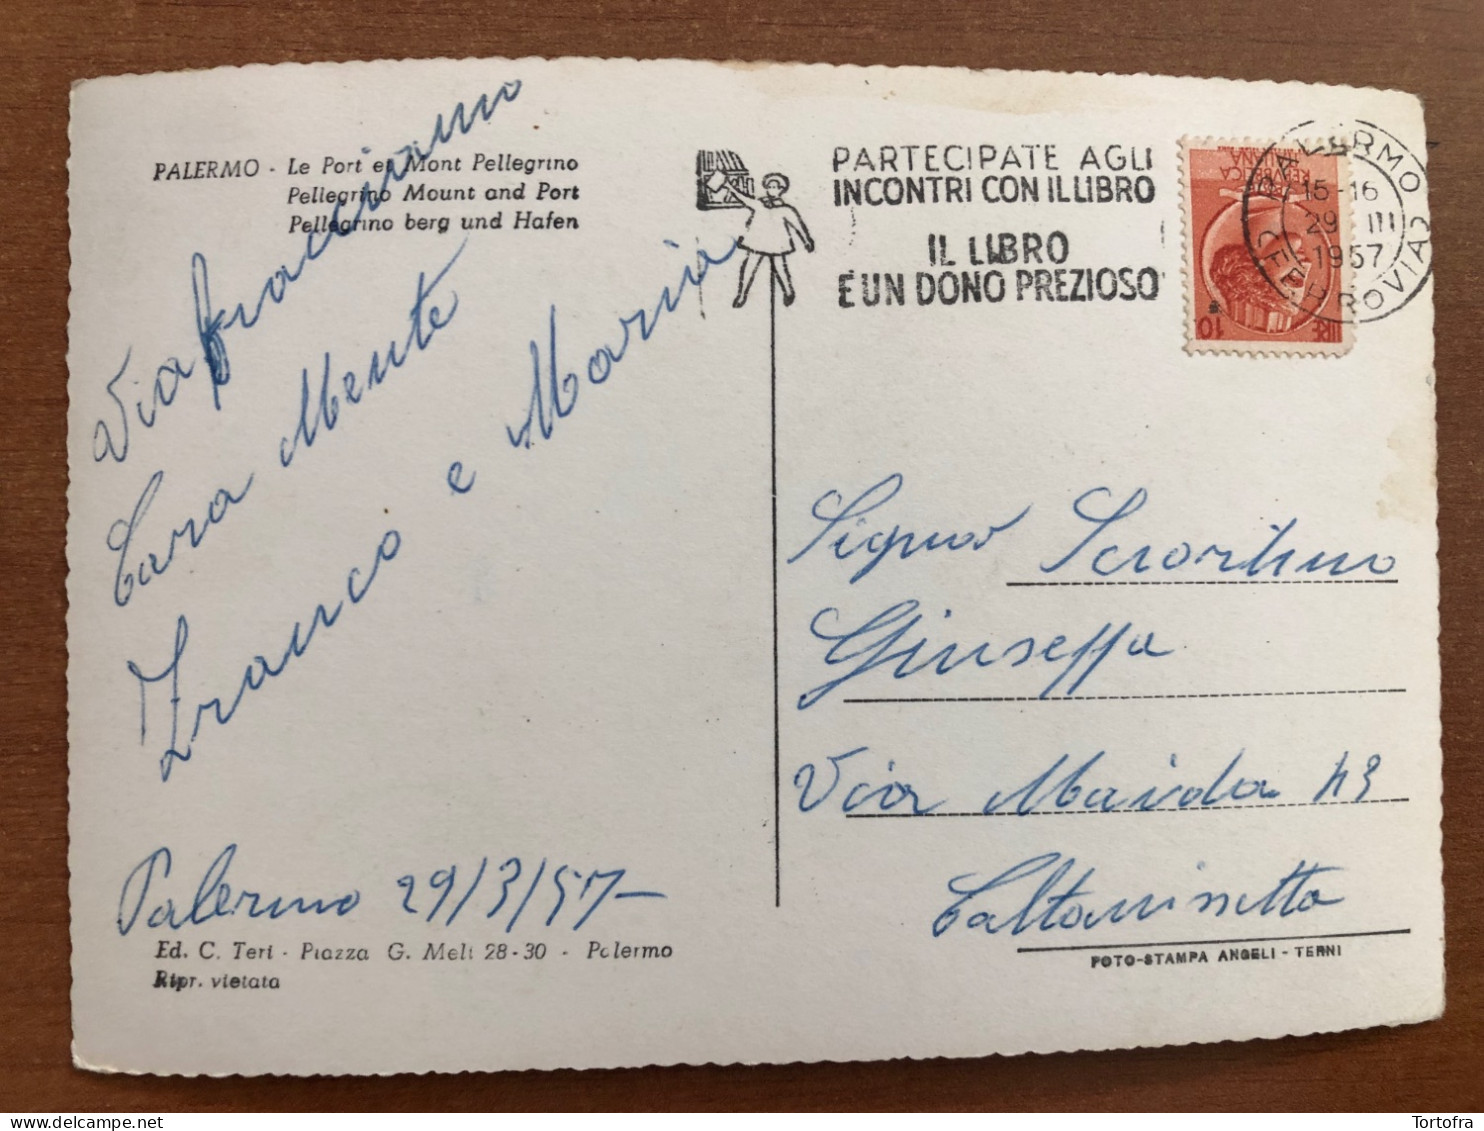 PALERMO - Le Port et Mont Pellegrino
Pellegrino Mount and Port
Pellegrino berg und Hafen
Cara Mente
Franco e Maria
Palermo 29/3/57-
Ed. C. Teri - Piazza G. Meli 28-30 - Palermo
Ripr. vietata
PARTECIPATE AGLI
INCONTRI CON IL LIBRO
IL LIBRO
E UN DONO PREZIOSO
PALERMO FERROVIA
15-16
29 III
1957
REPUBBLICA
ITALIANA
LIRE 10
Signor Sciortino
Giuseppe
Via Maida 43
Caltanissetta
FOTO-STAMPA ANGELI - TERNI
Tortofra